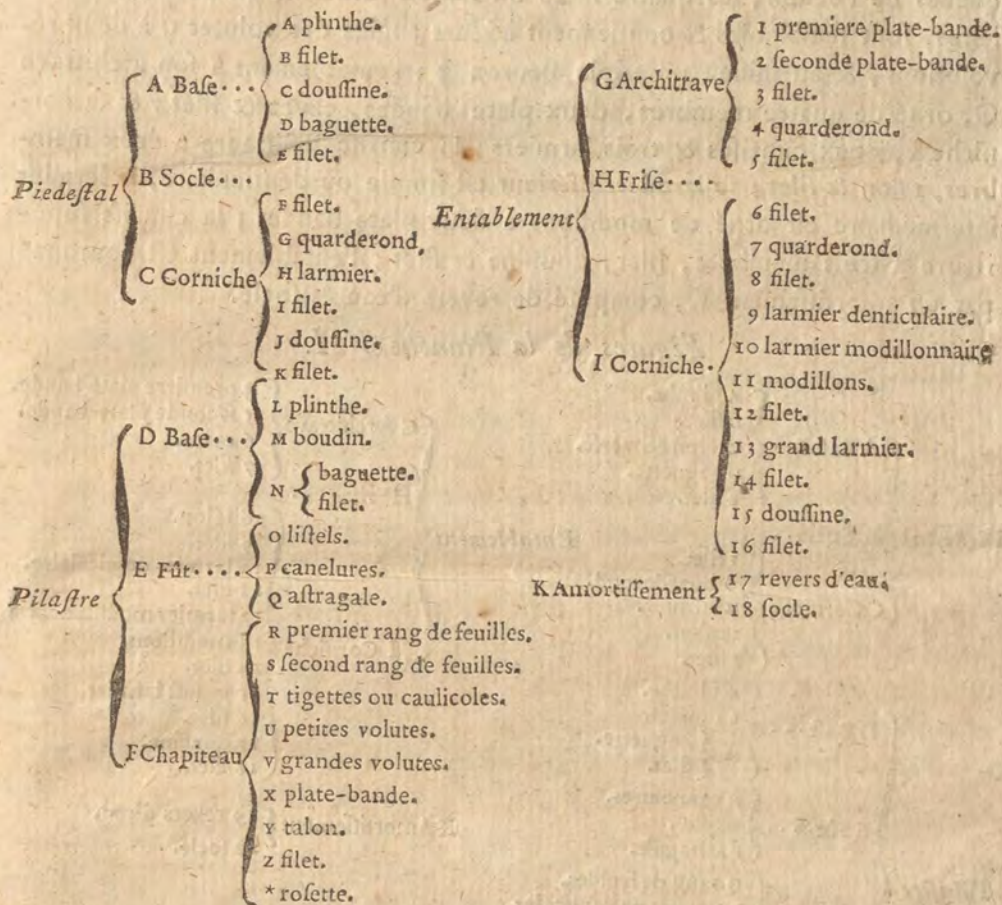 Piedeſtal
A Baſe
A plinthe.
B filet.
C douſſine.
D baguette.
E filet.
B Socle
C Corniche
F filet.
G quarderond,
H larmier.
I filet.
J douſſine.
K filet.
Pilaſtre
D Baſe
L plinthe.
M boudin.
N
baguette.
filet.
E Fût
O liſtels.
P canelures.
Q aſtragale.
F Chapiteau
R premier rang de feuilles.
S ſecond rang de feuilles.
T tigettes ou caulicoles.
U petites volutes.
V grandes volutes.
X plate-bande.
Y talon.
Z filet.
* roſette.
Entablement
G Architrave
1 premiere plate-bande.
2 ſeconde plate-bande.
3 filet.
4 quarderond.
5 filet.
H Friſe
I Corniche
6 filet.
7 quarderond.
8 filet.
9 larmier denticulaire.
10 larmier modillonnaire
11 modillons.
12 filet.
13 grand larmier.
14 filet.
15 douſſine,
16 filet.
K Amortiſſement
17 revers d'eau,
18 ſocle.